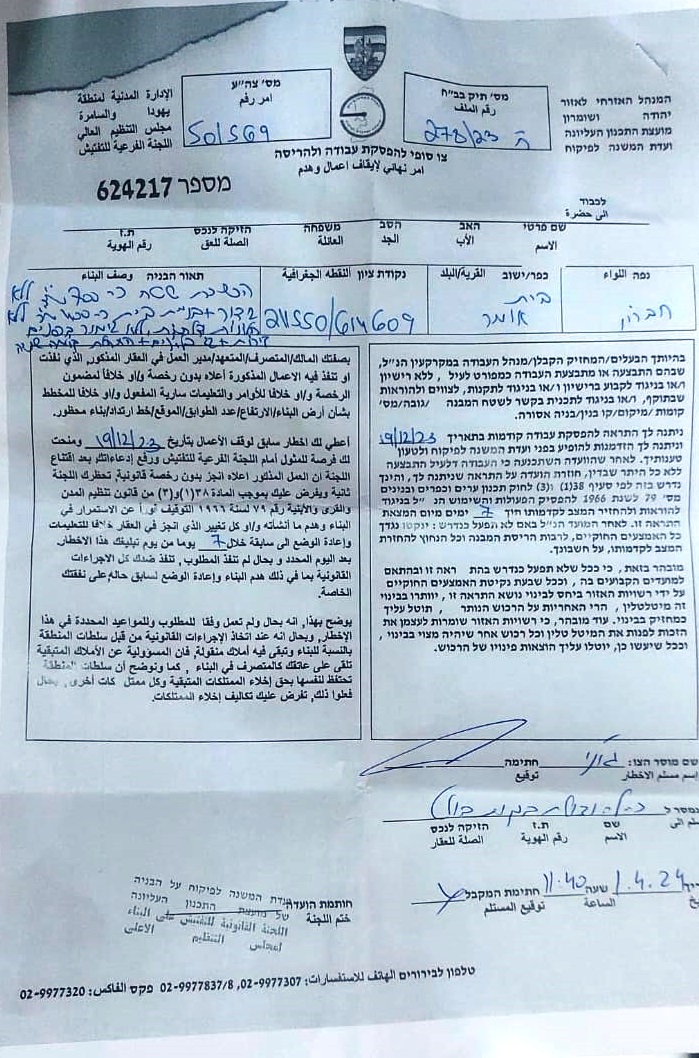 המנהל האזרחי לאזור
יהודה ושומרון
מועצת התכנון העליונה
ועדת המשנה לפיקוח
מס' תיק בב"ח
رقم الملف
ה 278/23
מס' צה"ע
امر رقم
50/569
الإدارة المدنية لمنطقة
يهودا والسامرة
مجلس التنظيم العالي
اللجنة الفرعية للتفتيش
צו סופי להפסקת עבודה ולהריסה
امر نهائي لإيقاف اعمال وهدم
מספר 624217
לכבוד
الى حضرة
שם פרטי האב הסב משפחה הזיקה לנכס ת.ז
الاسم الأب الجد العائلة الصلة للعق رقم الهوية
נפה اللواء
חברון
כפר/ישוב القرية/البلد
בית
אומר
נקודת ציון النقطه الجغرافية
211550/614609
תאור הבניה وصف البناء
בהיותך הבעלים/המחזיק הקבלן/מנהל העבודה במקרקעין הנ"ל,
שבהם התבצעה או מתבצעת העבודה כמפורט לעיל, ללא רישיון
ו/או בניגוד לקבוע ברישיון ו/או בניגוד לתקנות, לצווים ולהוראות
שבתוקף, ו/או בניגוד לתכנית בקשר לשטח המבנה /גובה/מס'
קומות /מיקום/קו בנין/בניה אסורה.
ניתנה לך התראה להפסקת עבודה קודמות בתאריך 19/12/23
וניתנה לך הזדמנות להופיע בפני ועדת המשנה לפיקוח ולטעון
טענותיך. לאחר שהוועדה השתכנעה כי העבודה דלעיל התבצעה
ללא כל היתר שבדין, חוזרת הועדה על התראה שניתנה לך, והינך
נדרש בזה לפי סעיף 38(1) (3) לחוק תכנון ערים וכפרים ובניינים
מס' 79 לשנת 1966 להפסיק הפעולות והשימוש הנ"ל בניגוד
להוראות ולהחזיר המצב לקדמותו תוך 7 ימים מיום המצאת
התראה זו. לאחר המועד הנ"ל באם לא תפעל כנדרש: ינקטו נגדך
כל האמצעים החוקיים, לרבות הריסת המבנה וכל הנחוץ להחזרת
המצב לקדמותו, על חשבונך.
מובהר בזאת, כי ככל שלא תפעל כנדרש בהתראה זו ובהתאם
למועדים הקבועים בה, וככל שבעת נקיטת האמצעים החוקיים
על ידי רשויות האזור ביחס לבינוי נושא התראה זו, יוותרו בבינוי
זה מיטלטלין, הרי האחריות על הרכוש הנותר, תוטל עליך
כמחזיק בבינוי. עוד מובהר, כי רשויות האזור שומרות לעצמן את
הזכות לפנות את המיטלטלין וכל רכוש אחר שיהיה מצוי בבינוי,
וככל שיעשו כן, יוטלו עליך הוצאות פינויו של הרכוש.
بصفتك المالك/المتصرف/المتعهد/مدير العمل في العقار المذكور، الذي نفذت
او تنفذ فيه الاعمال المذكورة أعلاه بدون رخصة و/او خلافا لمضمون
الرخصة و/او خلافا للأوامر والتعليمات سارية المفعول و/او خلافا للمخطط
بشأن أرض البناء/الارتفاع/عدد الطوابق/الموقع/خط ارتداد/بناء محظور.
أعطي لك اخطار سابق لوقف الأعمال بتاريخ 19/12/23 ومنحت
لك فرصة للمثول أمام اللجنة الفرعية للتفتيش ورفع إدعاءاتك بعد إقتناع
اللجنة ان العمل المذكور اعلاه انجز بدون رخصة قانونية، تحظرك اللجنة
ثانية ويفرض عليك بموجب المادة ٣٨(١)و(٣) من قانون تنظيم المدن
والقرى والأبنية رقم ٧٩ لسنة ١٩٦٦ التوقيف فوراً عن الاستمرار في
البناء وهدم ما أنشأته و/او كل تغيير الذي انجز في العقار خلافا للتعليمات
وإعادة الوضع الى سابقة خلال 7 يوما من يوم تبليغك هذا الاخطار.
بعد اليوم المحدد و بحال لم تنفذ المطلوب، تنفذ ضدك كل الاجراءات
القانونية بما في ذلك هدم البناء وإعادة الوضع لسابق حاله,على نفقتك
الخاصة.
يوضح بهذا, انه بحال ولم تعمل وفقا للمطلوب وللمواعيد المحددة في هذا
الإخطار, وبحال انه عند اتخاذ الإجراءات القانونية من قبل سلطات المنطقة
بالنسبة للبناء وتبقى فيه أملاك منقولة, فان المسؤولية عن الأملاك المتبقية
تلقى على عاتقك كالمتصرف في البناء, كما ونوضح أن سلطات المنطقة
تحتفظ لنفسها بحق إخلاء الممتلكات المتبقية وكل ممتلكات أخرى, بحال
فعلوا ذلك, تفرض عليك تكاليف إخلاء الممتلكات.
שם מוסר הצו: חתימה
اسم مسلم الاخطار توقيع
נמסר ל
שם ת.ז הזיקה לנכס
الاسم رقم الهوية الصلة للعقار
1.4.24 שעה 11:40 חתימת המקבל
الساعة توقيع المستلم
חותמת הועדה
ختم اللجنة
ועדת המשנה לפיקוח על הבניה
של מועצת התכנון העליונה
اللجنة القانونية للتفتيش على البناء
لمجلس التنظيم الاعلى
טלפון לבירורים الهاتف للاستفسارات: 02-9977307, 02-9977837/8 פקס الفاكس: 02-9977320